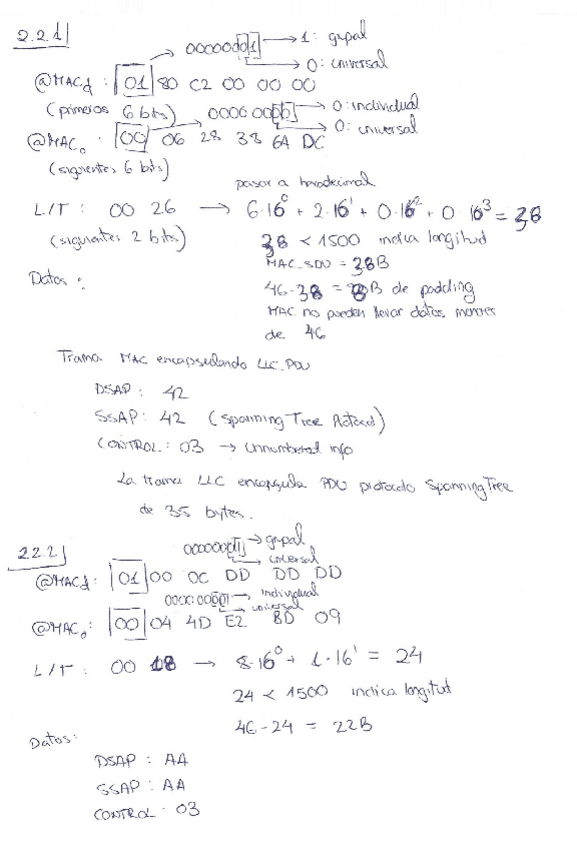 2.2.1
00000001 → 1: grupal
→ 0: universal
@MACd : 01 80 C2 00 00 00
(primeros 6 bits) 00000000 → 0: individual
→ 0: universal
@MACo : 00 06 28 38 6A DC
(siguientes 6 bits)
pasar a hexadecimal
L/T : 00 26 → 6·16⁰ + 2·16¹ + 0·16² + 0 16³ = 38
(siguientes 2 bits) 38 < 1500 indica longitud
MAC_SDU = 38B
Datos : 46-38 = 8B de padding
MAC no pueden llevar datos menores
de 46
Trama MAC encapsulando LLC_PDU
DSAP : 42
SSAP : 42 (Spanning Tree Protocol)
CONTROL : 03 → Unnumbered info
La trama LLC encapsula PDU protocolo Spanning Tree
de 35 bytes.
2.2.2
00000001 → grupal
→ universal
@MACd : 01 00 0C DD DD DD
0000:0000 → individual
→ universal
@MACo : 00 04 4D E2 BD 09
L/T : 00 18 → 8·16⁰ + 1·16¹ = 24
24 < 1500 indica longitud
46-24 = 22B
Datos:
DSAP : AA
SSAP : AA
CONTROL : 03